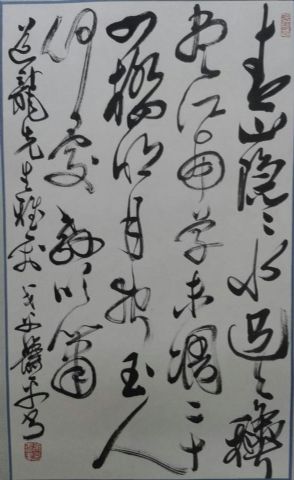 青山隐〻水迢〻秋
尽江南草未凋二十
四橋明月夜玉人
何處教吹簫
道龍先生雅正 戊子